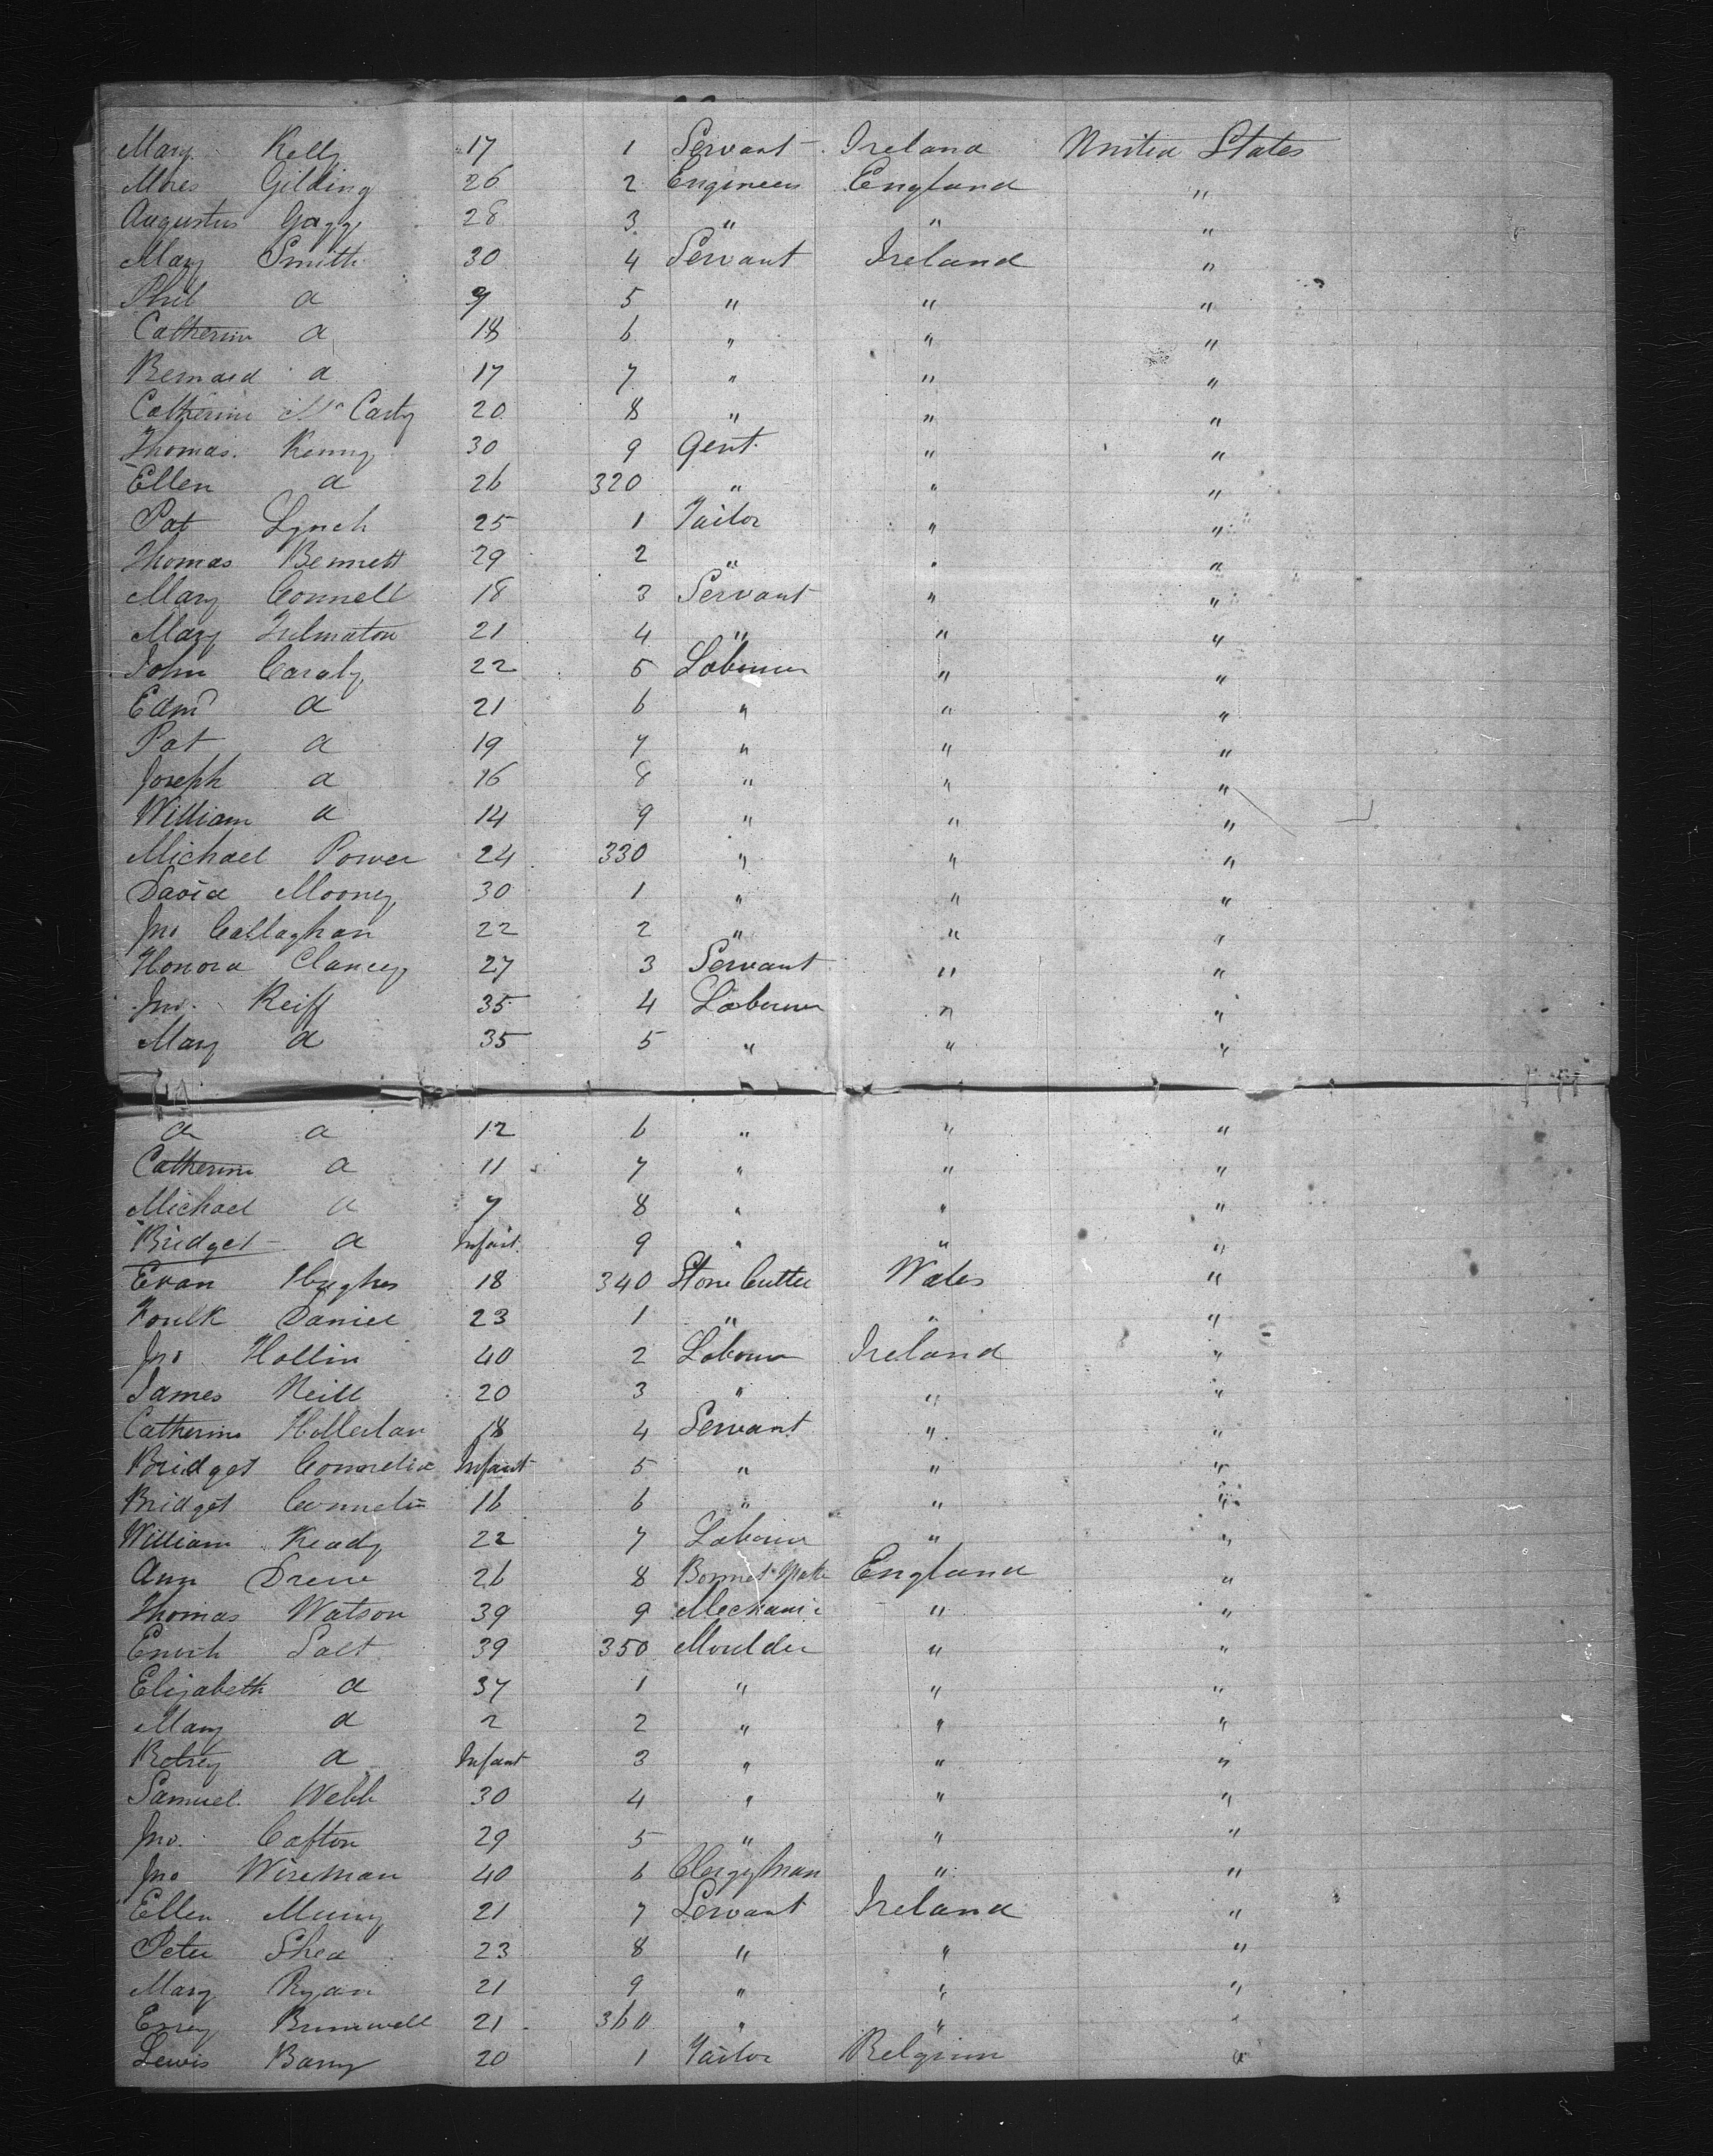 Mary Kelly 17 1 Servant Ireland United States
Moses Gilding 26 2 Engineer England "
Augustus Gagg 28 3 " " "
Mary Smith 30 4 Servant Ireland "
Phil a 9 5 " " "
Catherine a 18 6 " " "
Bernard a 17 7 " " "
Catherine McCarty 20 8 " " "
Thomas Kenny 30 9 Gent. " "
Ellen a 26 320 " " "
Pat Lynch 25 1 Tailor " "
Thomas Bennett 29 2 " " "
Mary Connell 18 3 Servant " "
Mary 21 4 " " "
John 22 5 Labourer " "
Edmd a 21 6 " " "
Pat a 19 7 " " "
Joseph a 16 8 " " "
William a 14 9 " " "
Michael Power 24 330 " " "
David Mooney 30 1 " " "
Jno Callaghan 22 2 " " "
Honora Clancy 27 3 Servant " "
Jno. Keiff 35 4 Labourer " "
Mary a 35 5 " " "
a a 12 6 " " "
Catherine a 11 7 " " "
Michael a 7 8 " " "
Bridget a Infant 9 " " "
Evan Hughes 18 340 Stone Cutter Wales "
Foulk Daniel 23 1 " " "
Jno Hollin 40 2 Labour Ireland "
James Neill 20 3 " " "
Catherine Hollerlan 18 4 Servant " "
Bridget Connelia Infant 5 " " "
Bridget 16 6 " " "
William Keady 22 7 Labour " "
Ann Drew 26 8 Bonnet England "
Thomas Watson 39 9 Mechanic " "
Enoch Salt 39 350 Moulder " "
Elizabeth a 37 1 " " "
Mary a 2 2 " " "
a Infant 3 " " "
Samuel Webb 30 4 " " "
Jno. Cafton 29 5 " " "
Jno Wiseman 40 6 Clergyman " "
Ellen 21 7 Servant Ireland "
Peter Shea 23 8 " " "
Mary Ryan 21 9 " " "
21 360 " " "
Lewis Barry 20 1 Tailor Belgium "